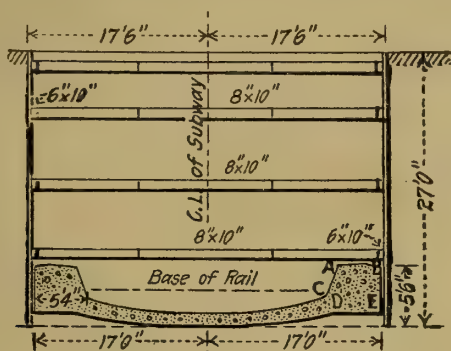 17'6" 17'6"
6"x10"
8"x10"
C.L. of Subway
27'0"
8"x10"
8"x10" 6"x10"
A B
Base of Rail
C
5'4" D E 5'6"
17'0" 17'0"